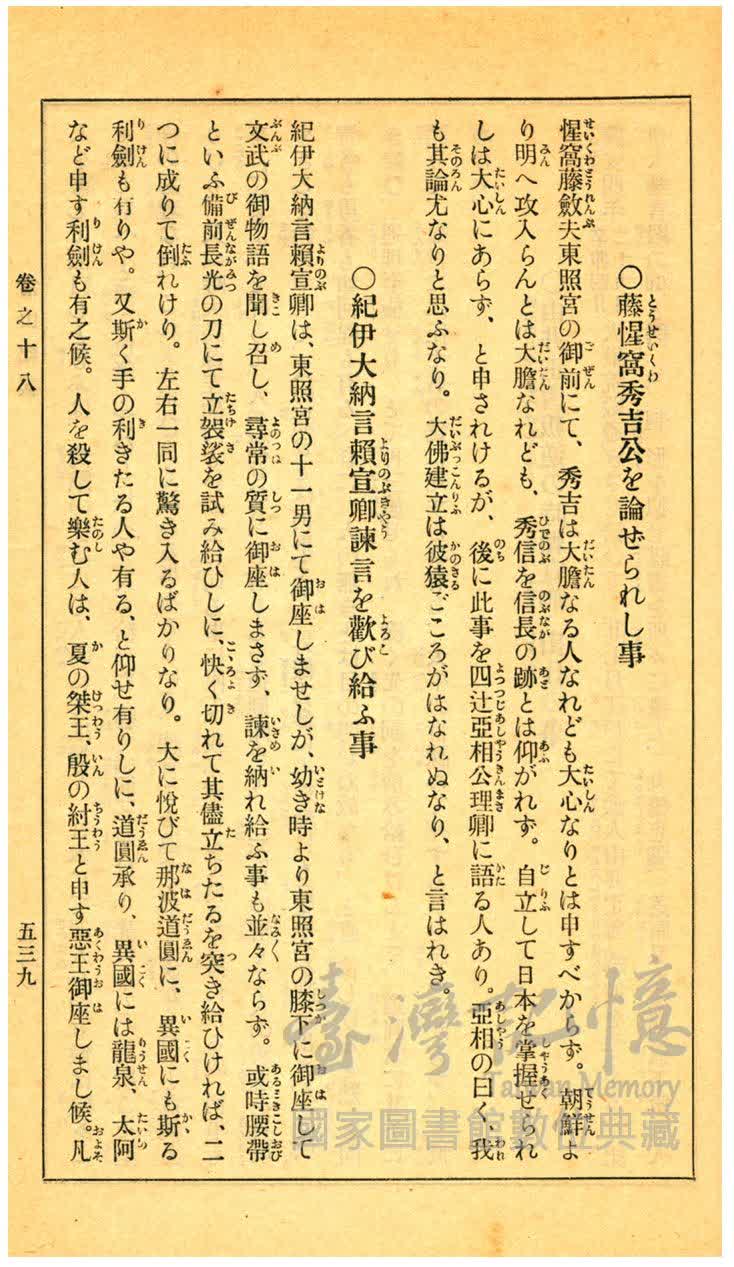 ○藤惺窩秀吉公を論ぜられし事
惺窩藤斂夫東照宮の御前にて、秀吉は大膽なる人なれども大心なりとは申すべからず。朝鮮よ
り明へ攻入らんとは大膽なれども、秀信を信長の跡とは仰がれず。自立して日本を掌握せられ
しは大心にあらず、と申されけるが、後に此事を四辻亞相公理卿に語る人あり。亞相の曰く、我
も其論尤なりと思ふなり。大佛建立は彼猿ごころがはなれぬなり、と言はれき。
○紀伊大納言賴宣卿諫言を歡び給ふ事
紀伊大納言賴宣卿は、東照宮の十一男にて御座しませしが、幼き時より東照宮の膝下に御座して
文武の御物語を聞し召し、尋常の質に御座しまさず、諫を納れ給ふ事も並々ならず。或時腰帶
といふ備前長光の刀にて立袈裟を試み給ひしに、快く切れて其儘立ちたるを突き給ひければ、二
つに成りて倒れけり。左右一同に驚き入るばかりなり。大に悅びて那波道圓に、異國にも斯る
利劍も有りや。又斯く手の利きたる人や有る、と仰せ有りしに、道圓承り、異國には龍泉、太阿
など申す利劍も有之候。人を殺して樂む人は、夏の桀王、殷の紂王と申す惡王御座しまし候。凡
卷之十八
五三九
臺灣記憶
Taiwan Memory
國家圖書館數位典藏